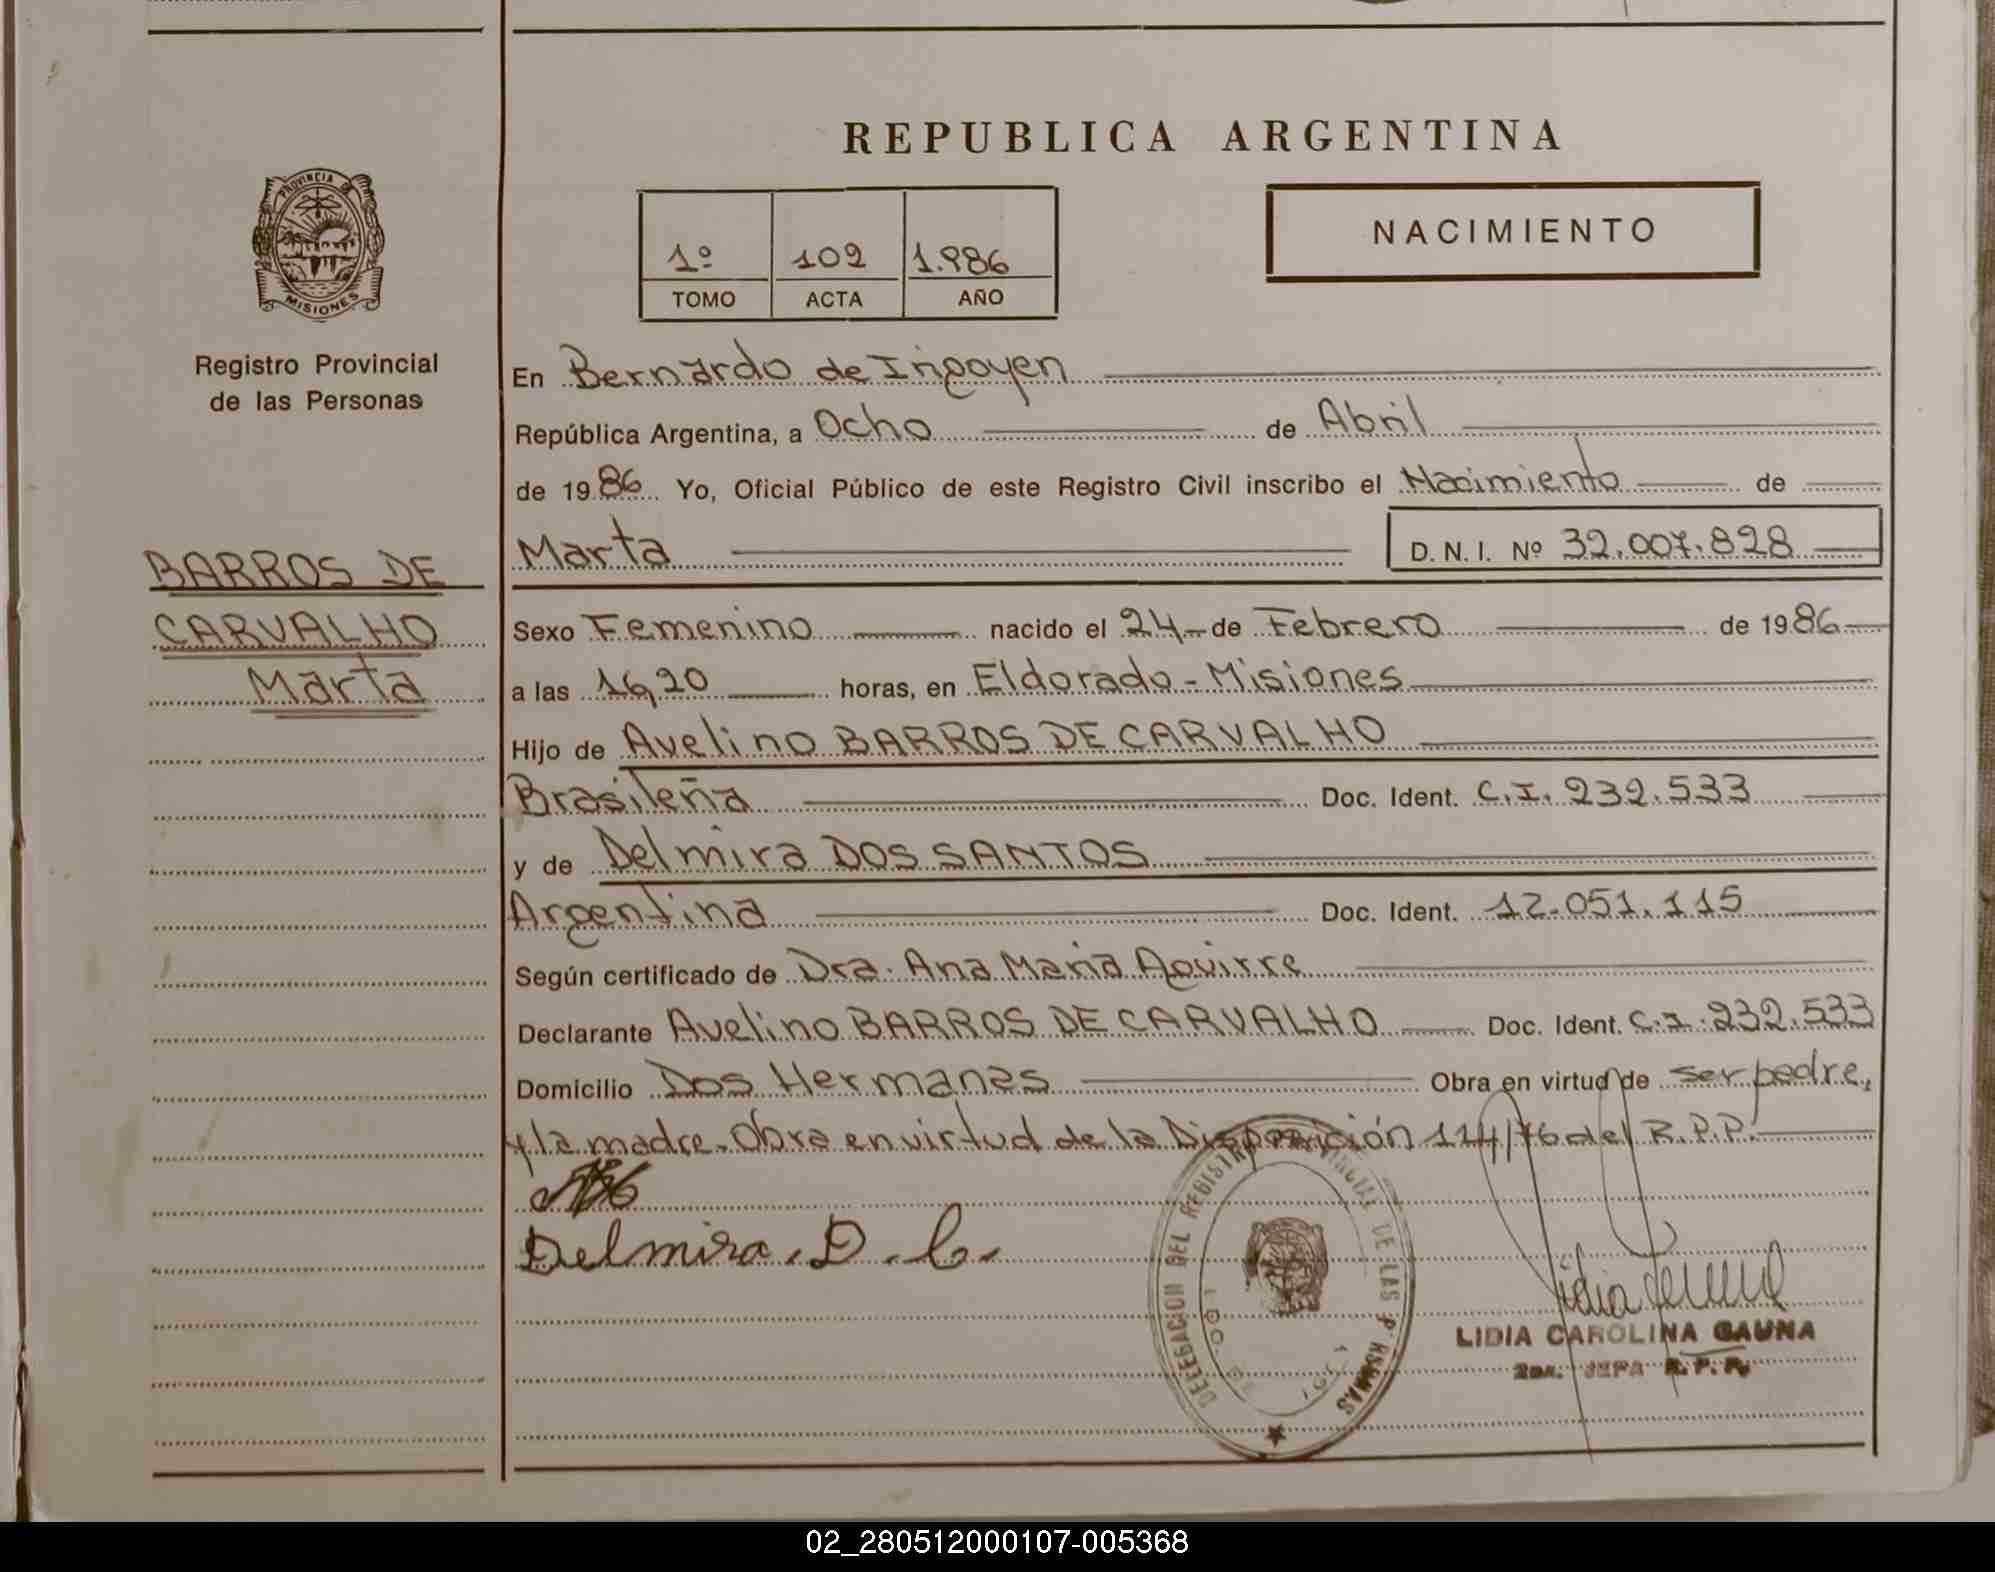 REPUBLICA ARGENTINA
PROVINCIA DE
MISIONES
Registro Provincial
de las Personas
1º 102 1.986
TOMO ACTA AÑO
NACIMIENTO
En Bernardo de Irigoyen
República Argentina, a Ocho de Abril
de 1986 Yo, Oficial Público de este Registro Civil inscribo el Nacimiento de
Marta D. N. I. Nº 32.007.828
BARROS DE
CARVALHO
Marta
Sexo Femenino nacido el 24 de Febrero de 1986
a las 16,20 horas, en Eldorado - Misiones
Hijo de Avelino BARROS DE CARVALHO
Brasileña Doc. Ident. C.I. 232.533
y de Delmira DOS SANTOS
Argentina Doc. Ident. 12.051.115
Según certificado de Dra. Ana Maria Aguirre
Declarante Avelino BARROS DE CARVALHO Doc. Ident. C.I. 232.533
Domicilio Dos Hermanas Obra en virtud de ser padre,
y la madre. Obra en virtud de la Disposición 114/76 del R.P.P.
Delmira. D. C.
DELEGACION DEL REGISTRO PROVINCIAL DE LAS PERSONAS
LIDIA CAROLINA GAUNA
2da. JEFA R. P. P.
02_280512000107-005368